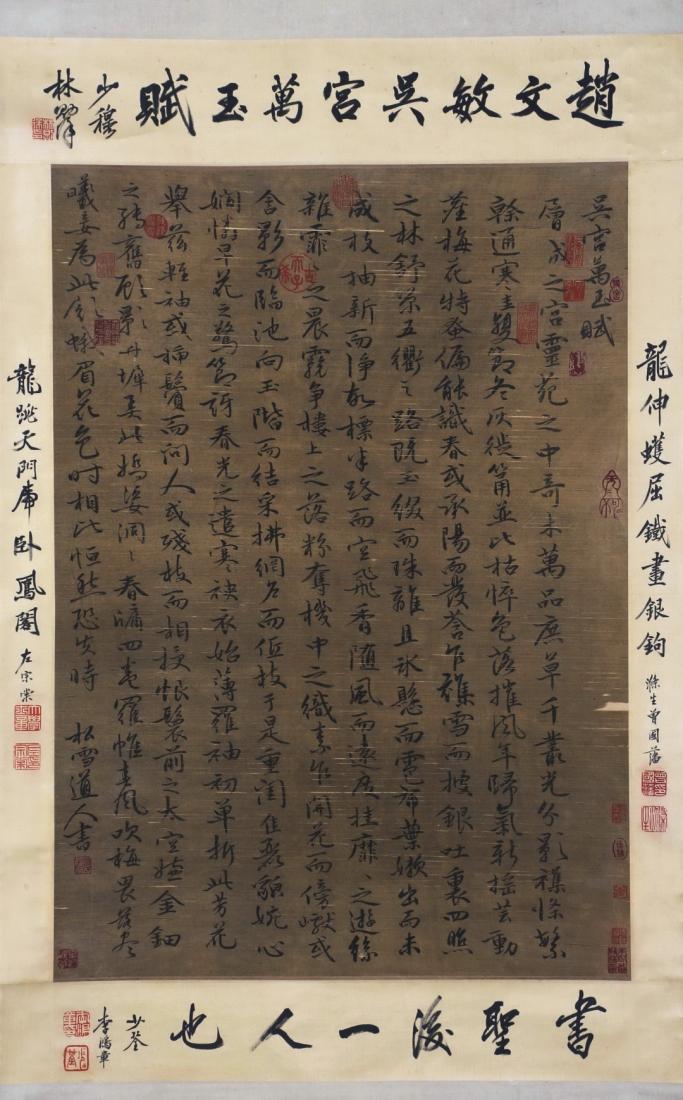 趙文敏吳宮萬玉賦
少穆
林則徐
吳宮萬玉賦
層城之宮靈苑之中奇木萬品庶草千叢光分影襍條繁
幹通寒圭變節冬灰徙筩並此枯悴色落摧風年歸氣新搖芸動
塵梅花特蚤偏能識春或承陽而發荅乍雜雪而披銀吐裏四照
之林舒榮五衢之路既玉綴而珠離且冰懸而雹布葉嫩出而未
成枝抽新而淨故標半路而空飛香隨風而遠度挂靡靡之遊絲
雜霏霏之晨霧爭樓上之落粉奪機中之織素乍開花而傍巘或
含影而臨池向玉階而結采拂網戶而低枝于是重閨佳麗貌婉心
嫺憐早花之驚節訝春光之遣寒裌衣始薄羅袖初單折此芳花
舉茲輕袖或插鬢而問人或殘枝而相授恨鬟前之太空嫌金鈿
之轉舊顧影丹墀弄此嬌姿洞洞春牖四卷羅帷春風吹梅畏落盡
賤妾為此斂蛾眉花色時相比恒愁恐失時 松雪道人書
龍伸蠖屈鐵畫銀鉤
滌生曾國藩
龍跳天門虎臥鳳閣
左宗棠
書聖後一人也
少荃
李鴻章